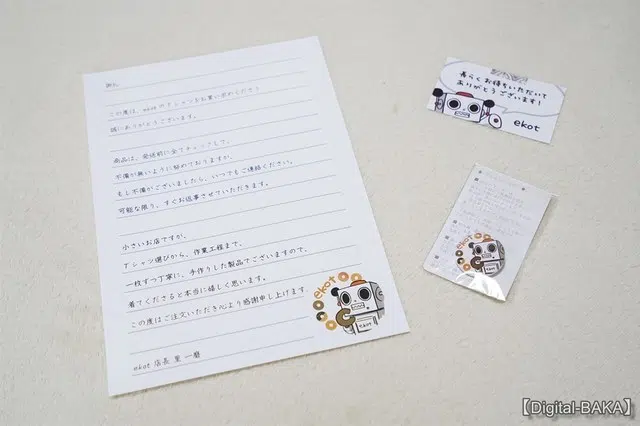 この度は、ekotのTシャツをお買い求めくださり
誠にありがとうございます。
商品は、発送前に全てチェックして、
不備が無いように努めておりますが、
もし不備がございましたら、いつでもご連絡ください。
可能な限り、すぐお返事させていただきます。
小さいお店ですが、
Tシャツ選びから、作業工程まで、
一枚ずつ丁寧に、手作りした製品でございますので、
着てくださると本当に嬉しく思います。
この度はご注文いただき心より感謝申し上げます。
ekot 店長
ekot
ekot
暫らくお待ちいただいて
ありがとうございます!
ekot
ekot
【Digital-BAKA】